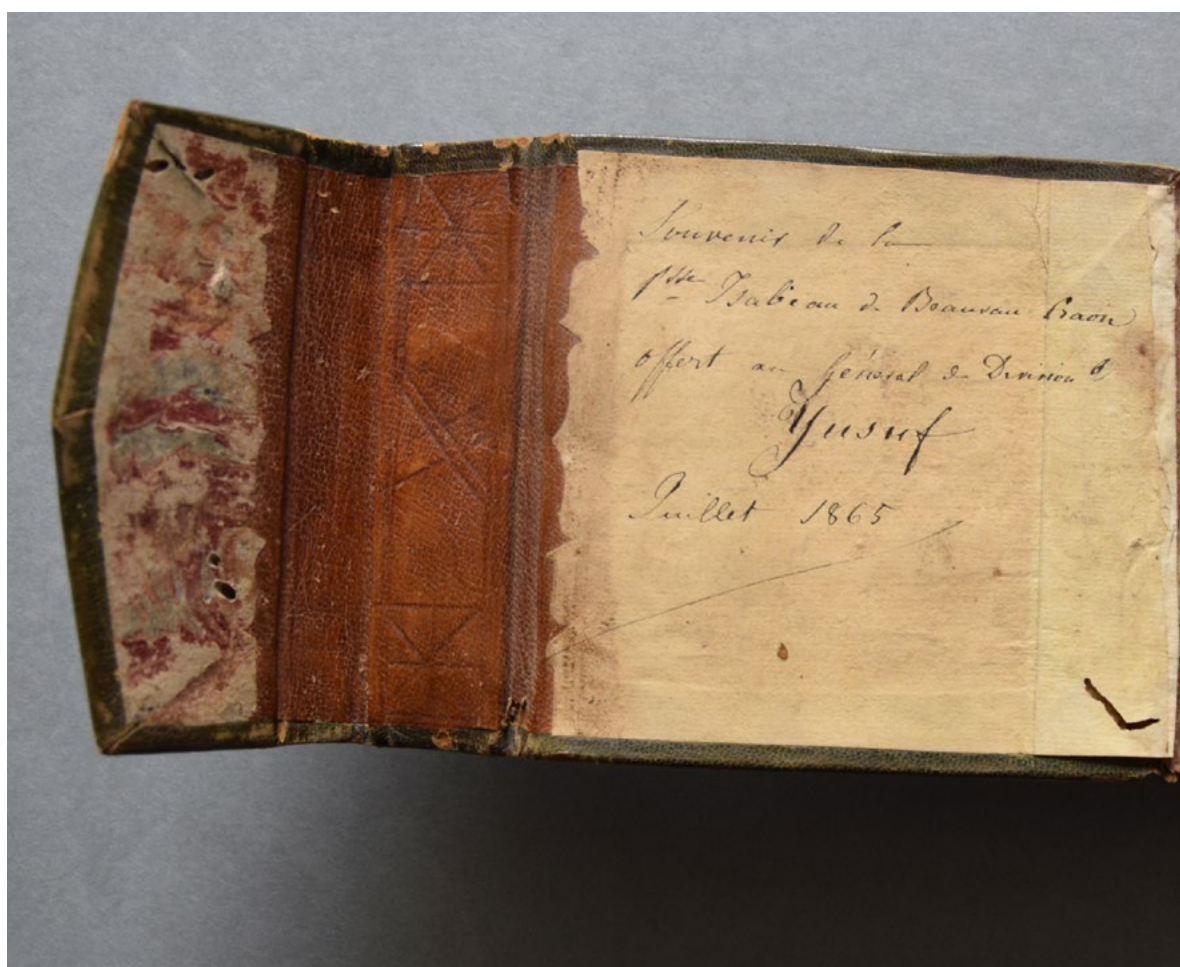 Souvenir de la
Psse Isabeau de Beauvau Craon
offert au Général de Division
Yusuf
Juillet 1865